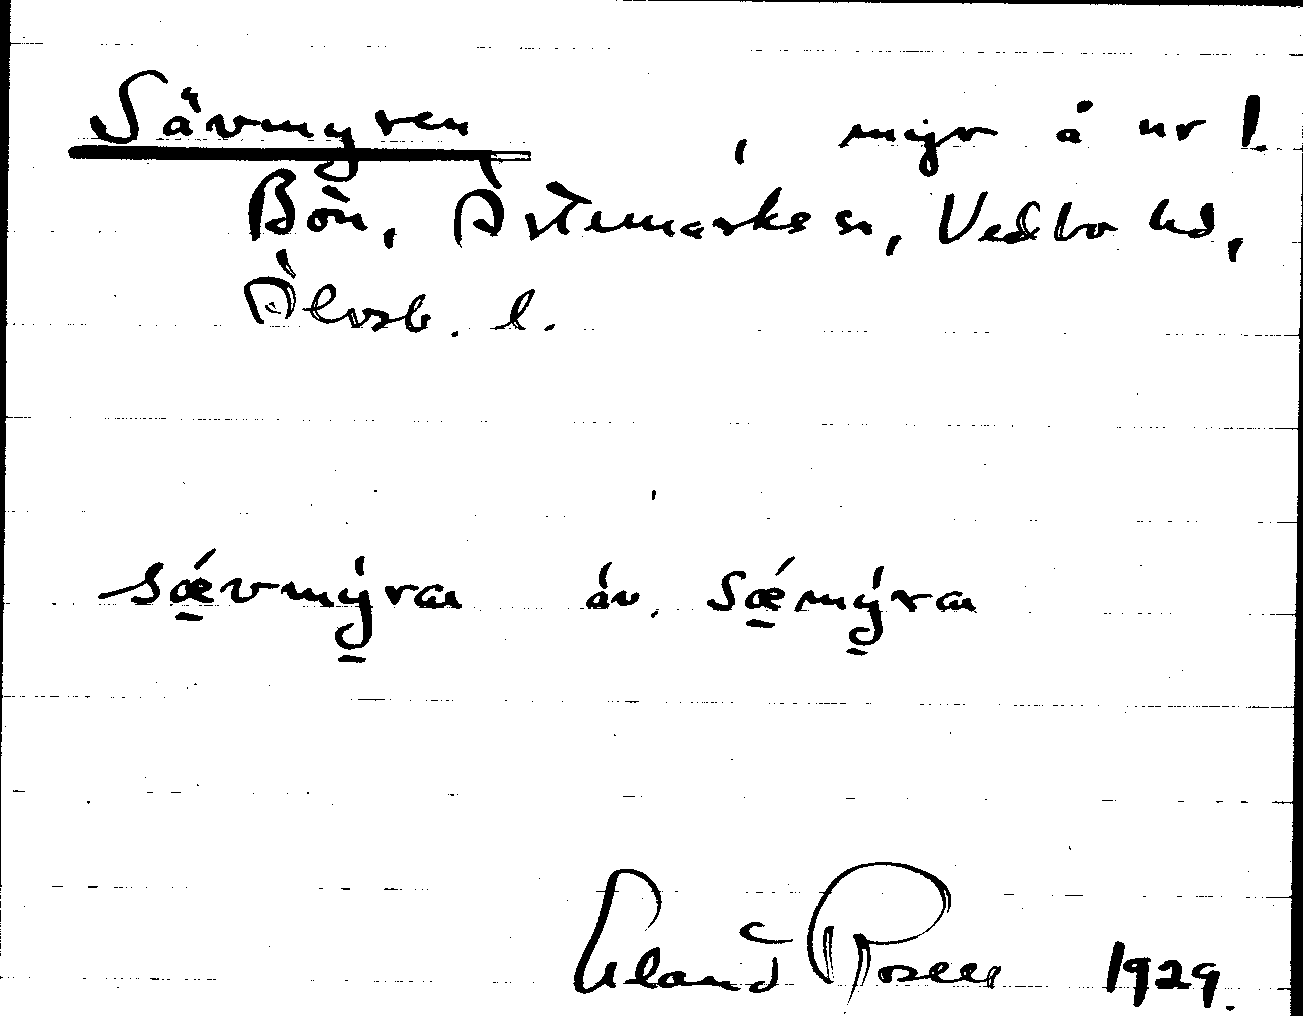 Sävmyren, myr å nr 1.
Bön, Ärtemarks sn, Vedbo hd,
Älvsb. l.
sǽvmýran äv. sǽmýran
Erland Rosell 1929.